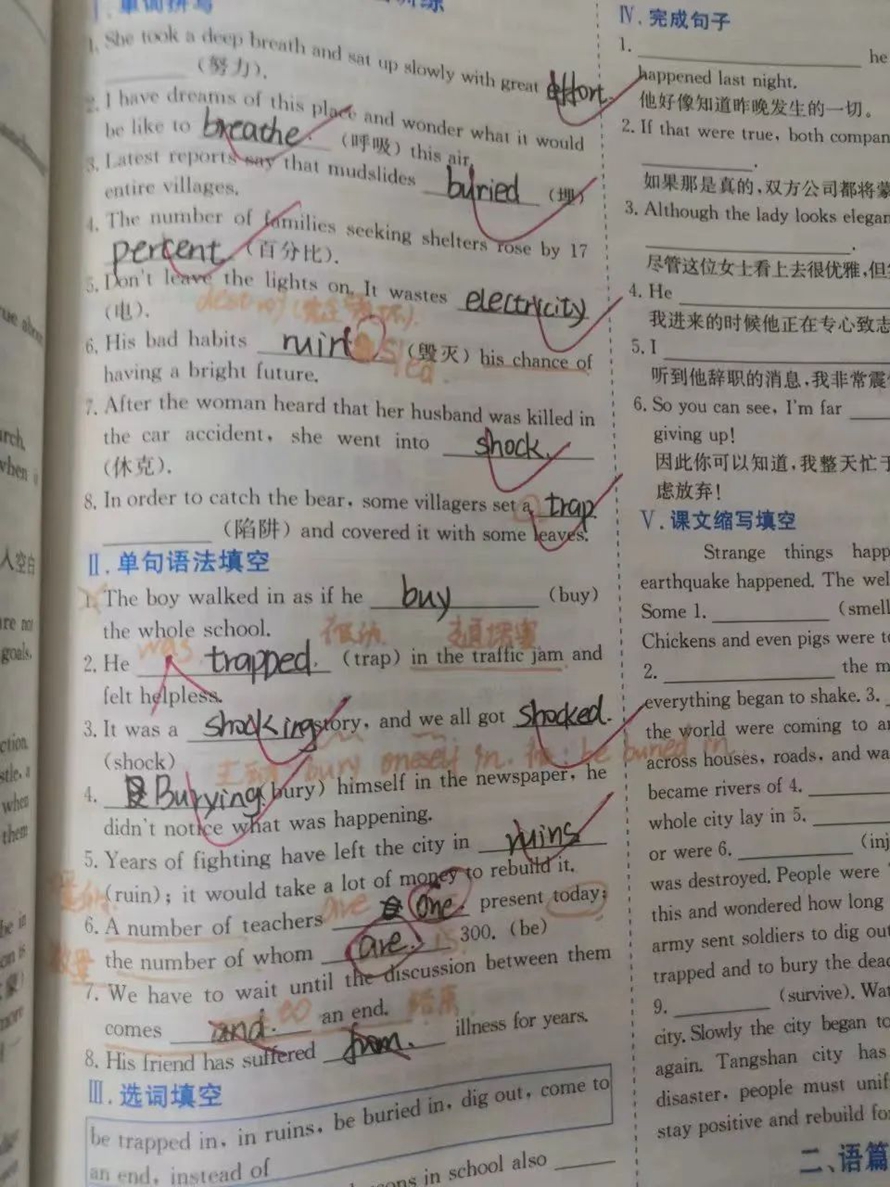 Ⅰ.单词拼写
训练
1. She took a deep breath and sat up slowly with great effort.
(努力).
2. I have dreams of this place and wonder what it would
be like to breathe. (呼吸) this air.
3. Latest reports say that mudslides buried (埋)
entire villages.
4. The number of families seeking shelters rose by 17
percent. (百分比).
5. Don't leave the lights on. It wastes electricity
(电).
destroy
6. His bad habits ruin (毁灭) his chance of
having a bright future.
7. After the woman heard that her husband was killed in
the car accident, she went into shock.
(休克).
8. In order to catch the bear, some villagers set a trap
(陷阱) and covered it with some leaves.
Ⅱ.单句语法填空
1. The boy walked in as if he buy (buy)
the whole school.
was
2. He trapped. (trap) in the traffic jam and
felt helpless.
3. It was a shocking story, and we all got shocked.
(shock)
主动 bury oneself in. be buried in.
4. Burying (bury) himself in the newspaper, he
didn't notice what was happening.
5. Years of fighting have left the city in ruins
(ruin); it would take a lot of money to rebuild it.
6. A number of teachers are one. present today;
数量
the number of whom are. is 300. (be)
7. We have to wait until the discussion between them
comes and. to an end. 结束
8. His friend has suffered from. illness for years.
Ⅲ.选词填空
be trapped in, in ruins, be buried in, dig out, come to
an end, instead of
in school also
Ⅳ.完成句子
1. he
happened last night.
他好像知道昨晚发生的一切。
2. If that were true, both
如果那是真的,双方公司都将
3. Although the lady looks
尽管这位女士看上去很优雅,但
4. He
我进来的时候他正在专心致
5. I
听到他辞职的消息,我非常震
6. So you can see, I'm far
giving up!
因此你可以知道,我整天忙于
虑放弃!
Ⅴ.课文缩写填空
Strange things
earthquake happened. The
Some 1.
Chickens and even pigs were
2. the
everything began to shake. 3.
the world were coming to
across houses, roads, and
became rivers of 4.
whole city lay in 5.
or were 6.
was destroyed. People were
this and wondered how long
army sent soldiers to dig
trapped and to bury the
9. (survive).
city. Slowly the city began
again. Tangshan city has
disaster, people must
stay positive and rebuild
二、语篇